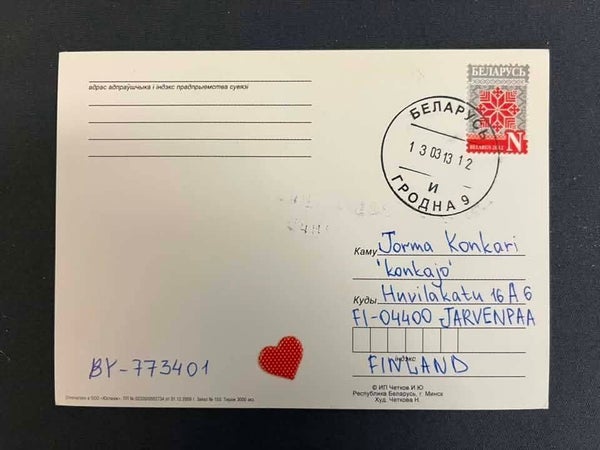 БЕЛАРУСЬ
BELARUS 2012
N
БЕЛАРУСЬ
13 03 13 12
И
ГРОДНА 9
адрас адпраўшчыка і індэкс прадпрыемства сувязі
Каму Jorma Konkari
'konkajo'
Куды Huvilakatu 16 A 6
FI-04400 JARVENPAA
індэкс
FINLAND
BY-773401
© ИП Четков И.Ю
Республика Беларусь, г. Минск
Худ. Четкова Н.